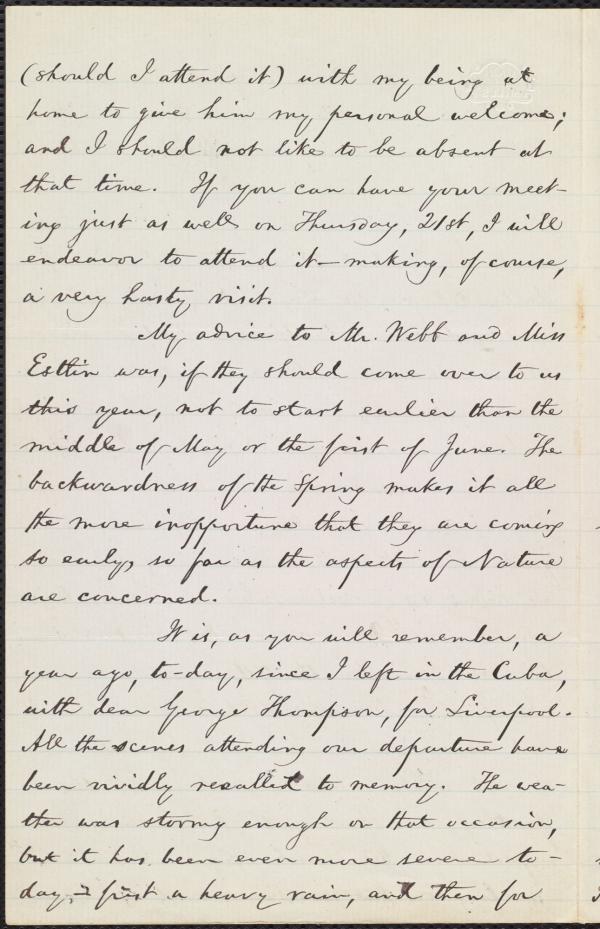 (should I attend it) with my being at
home to give him my personal welcome;
and I should not like to be absent at
that time. If you can have your meet-
ing just as well on Thursday, 21st, I will
endeavor to attend it—making, of course,
a very hasty visit.
My advice to Mr. Webb and Miss
Estlin was, if they should come over to us
this year, not to start earlier than the
middle of May or the first of June. The
backwardness of the Spring makes it all
the more inopportune that they are coming
so early, so far as the aspects of Nature
are concerned.
It is, as you will remember, a
year ago, to-day, since I left in the Cuba,
with dear George Thompson, for Liverpool.
All the scenes attending our departure have
been vividly recalled to memory. The wea-
ther was stormy enough on that occasion,
but it has been even more severe to-
day,—first a heavy rain, and then for